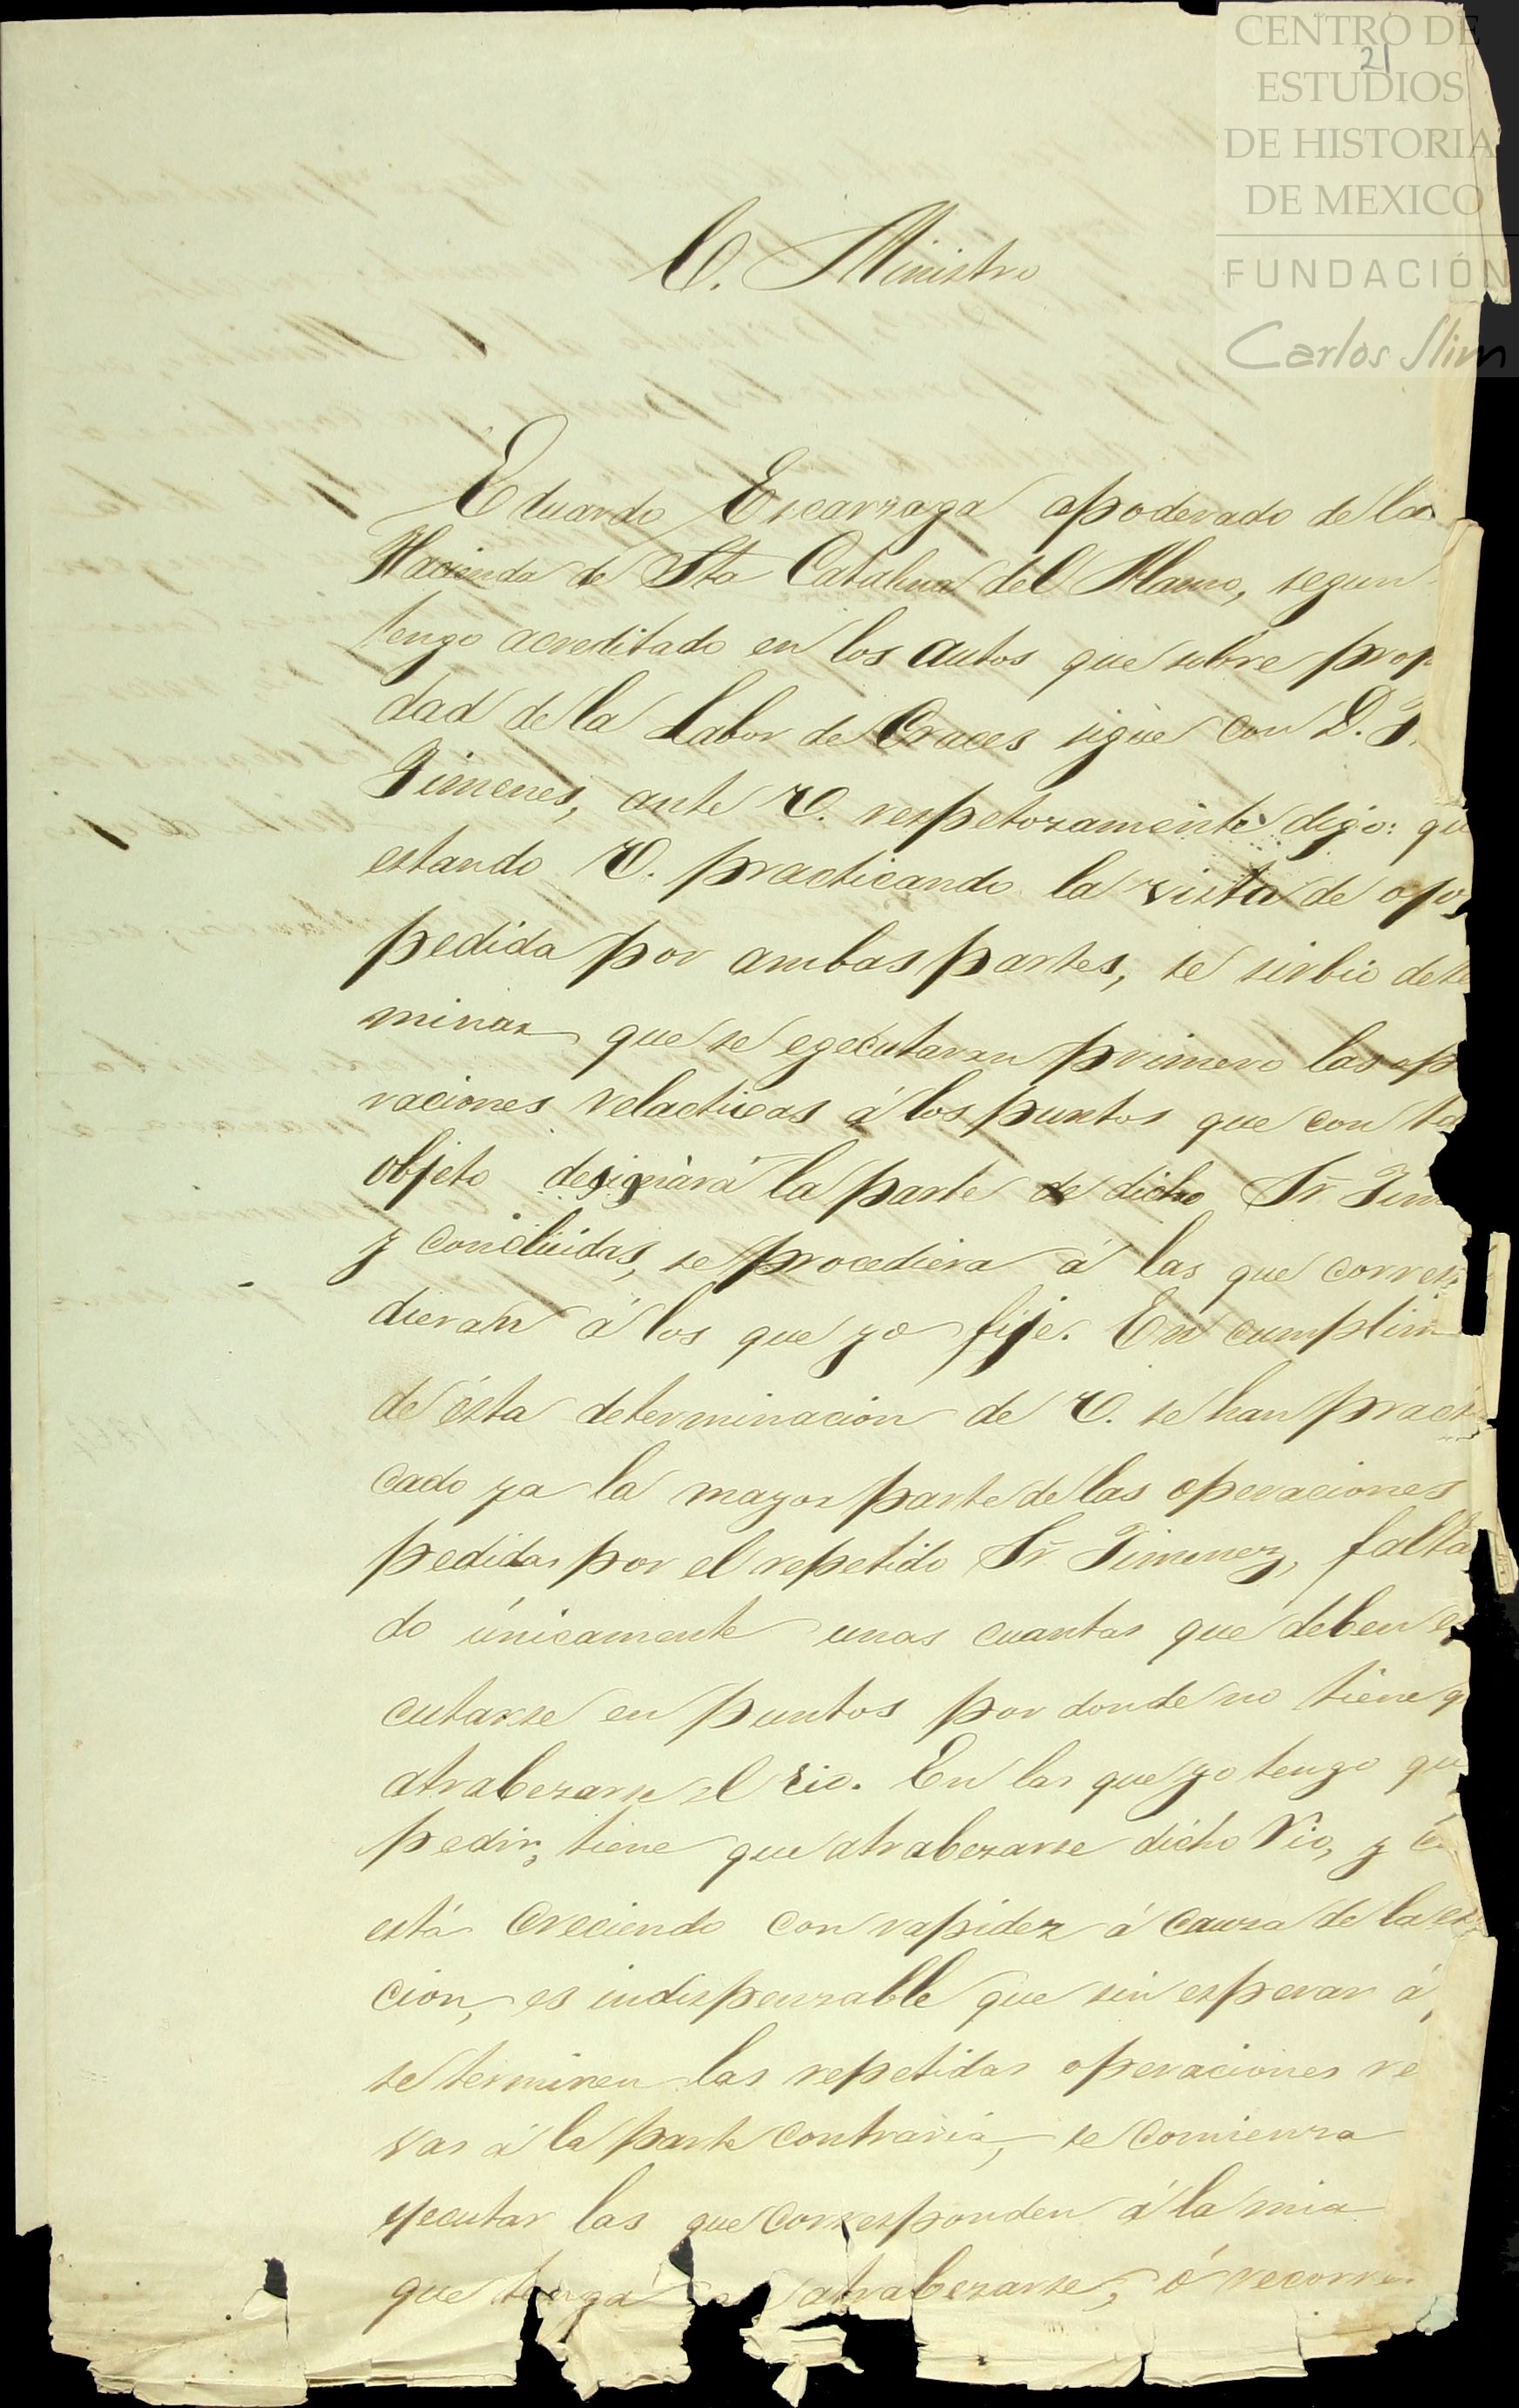 CENTRO DE
21
ESTUDIOS
DE HISTORIA
DE MEXICO
FUNDACIÓN
Carlos Slim
C. Ministro
Eduardo Escarzaga apoderado de la
Hacienda de Sta Catalina del Alamo, segun
tengo acreditado en los autos que sobre prop
dad de la Labor de Craces sigue con D. J.
Jimenes, ante V. respetozamente digo: qu
estando V. practicando la vista de ojos
pedida por ambas partes, se sirbio dete
minar que se egecutaran primero las op
raciones relacticas á los puntos que con ta
objeto designará la parte de dicho Sr Jim
y concluidas, se procediera á las que corres
dieran á los que yo fije. En cumplim
de ésta determinacion de V. se han practi
cado ya la mayor parte de las operaciones
pedidas por el repetido Sr. Jimenez, falta
do únicamente unas cuantas que deben e
cutarse en puntos por donde no tiene q
atrabezarse el rio. En las que yo tengo qu
pedir, tiene que atrabezarse dicho rio, y
está creciendo con rapidez á causa de la es
cion, es indispenzable que sin esperar á
se terminen las repetidas operaciones re
vas á la parte contraria, se comienza
ejecutar las que corresponden á la mia
que tenga atrabezarse, ó recorre